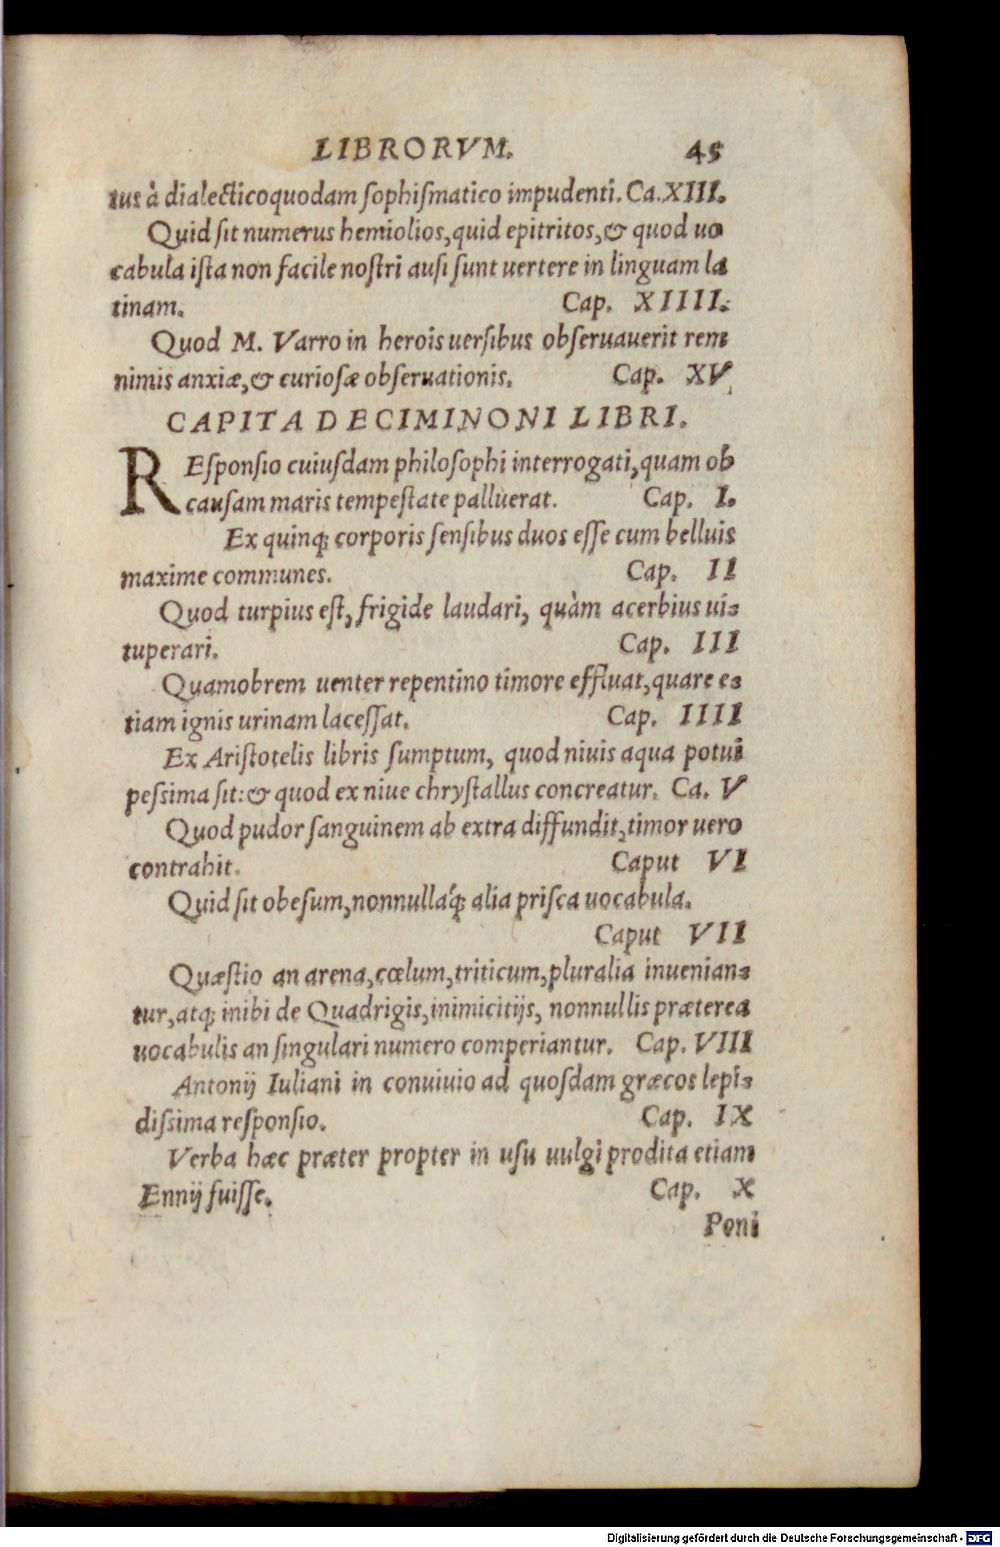 LIBRORVM. 45
tus à dialectico quodam ſophiſmatico impudenti. Ca. XIII.
Quid ſit numerus hemiolios, quid epitritos, & quod uo
cabula iſta non facile noſtri auſi ſunt uertere in linguam la
tinam. Cap. XIIII.
Quod M. Varro in herois uerſibus obſeruauerit rem
nimis anxiæ, & curioſæ obſeruationis. Cap. XV
CAPITA DECIMINONI LIBRI.
REſponſio cuiuſdam philoſophi interrogati, quam ob
cauſam maris tempeſtate palluerat. Cap. I.
Ex quinq; corporis ſenſibus duos eſſe cum belluis
maxime communes. Cap. II
Quod turpius eſt, frigide laudari, quàm acerbius ui-
tuperari. Cap. III
Quamobrem uenter repentino timore effluat, quare e-
tiam ignis urinam laceſſat. Cap. IIII
Ex Ariſtotelis libris ſumptum, quod niuis aqua potui
peſsima ſit: & quod ex niue chryſtallus concreatur. Ca. V
Quod pudor ſanguinem ab extra diffundit, timor uero
contrahit. Caput VI
Quid ſit obeſum, nonnullaq́; alia priſca uocabula.
Caput VII
Quæſtio an arena, cœlum, triticum, pluralia inuenian-
tur, atq; inibi de Quadrigis, inimicitijs, nonnullis præterea
uocabulis an ſingulari numero comperiantur. Cap. VIII
Antonij Iuliani in conuiuio ad quoſdam græcos lepi-
diſsima reſponſio. Cap. IX
Verba hæc præter propter in uſu uulgi prodita etiam
Ennij fuiſſe. Cap. X
Poni
Digitalisierung gefördert durch die Deutsche Forschungsgemeinschaft - DFG